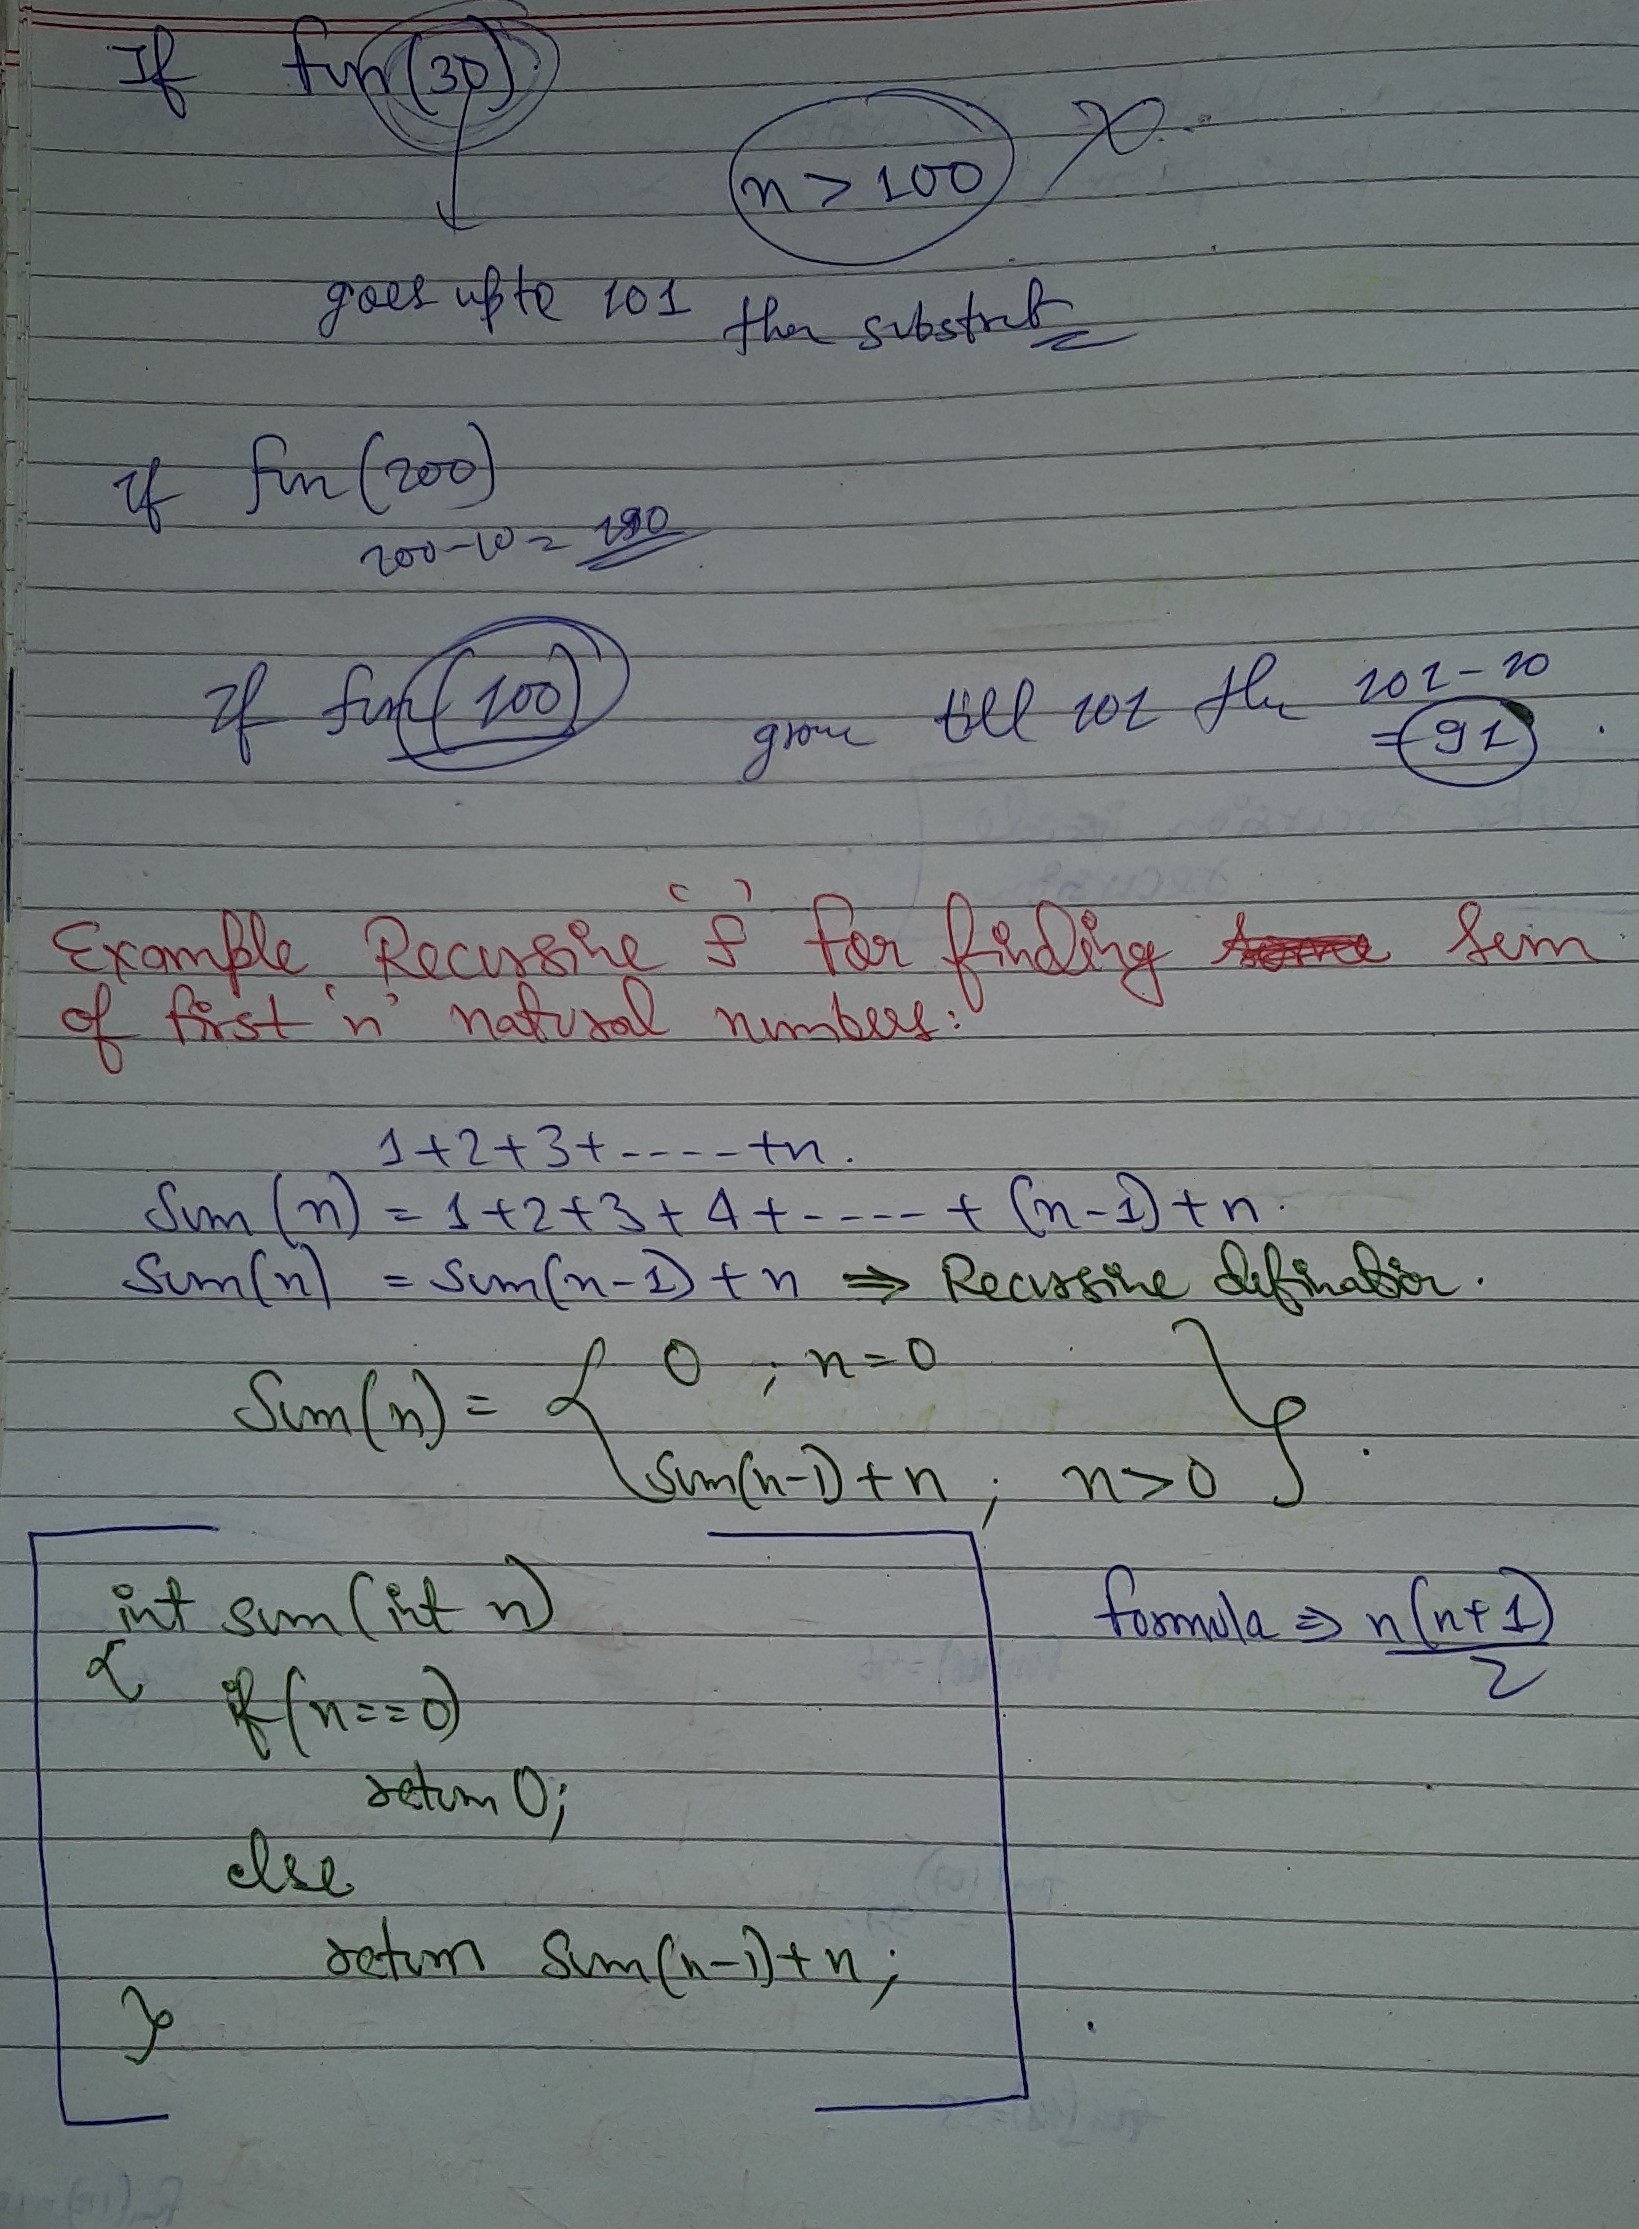 If fun(30)
n > 100
goes upto 101 then substrat
If fun(200)
200-10 = 190
If fun(100) grow till 101 the 101-10
= 91
Example Recursive 'f' for finding Sum
of first 'n' natural numbers:
1+2+3+-----+n.
Sum(n) = 1+2+3+4+-----+(n-1)+n.
Sum(n) = Sum(n-1)+n ⇒ Recursive defination.
0 ; n=0
Sum(n) = {          }.
sum(n-1)+n ; n>0
int sum(int n)
formula ⇒ n(n+1)
2
{
if(n==0)
return 0;
else
return Sum(n-1)+n;
}